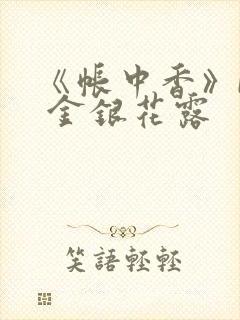 《帳中香》
金銀花露
笑語輕輕